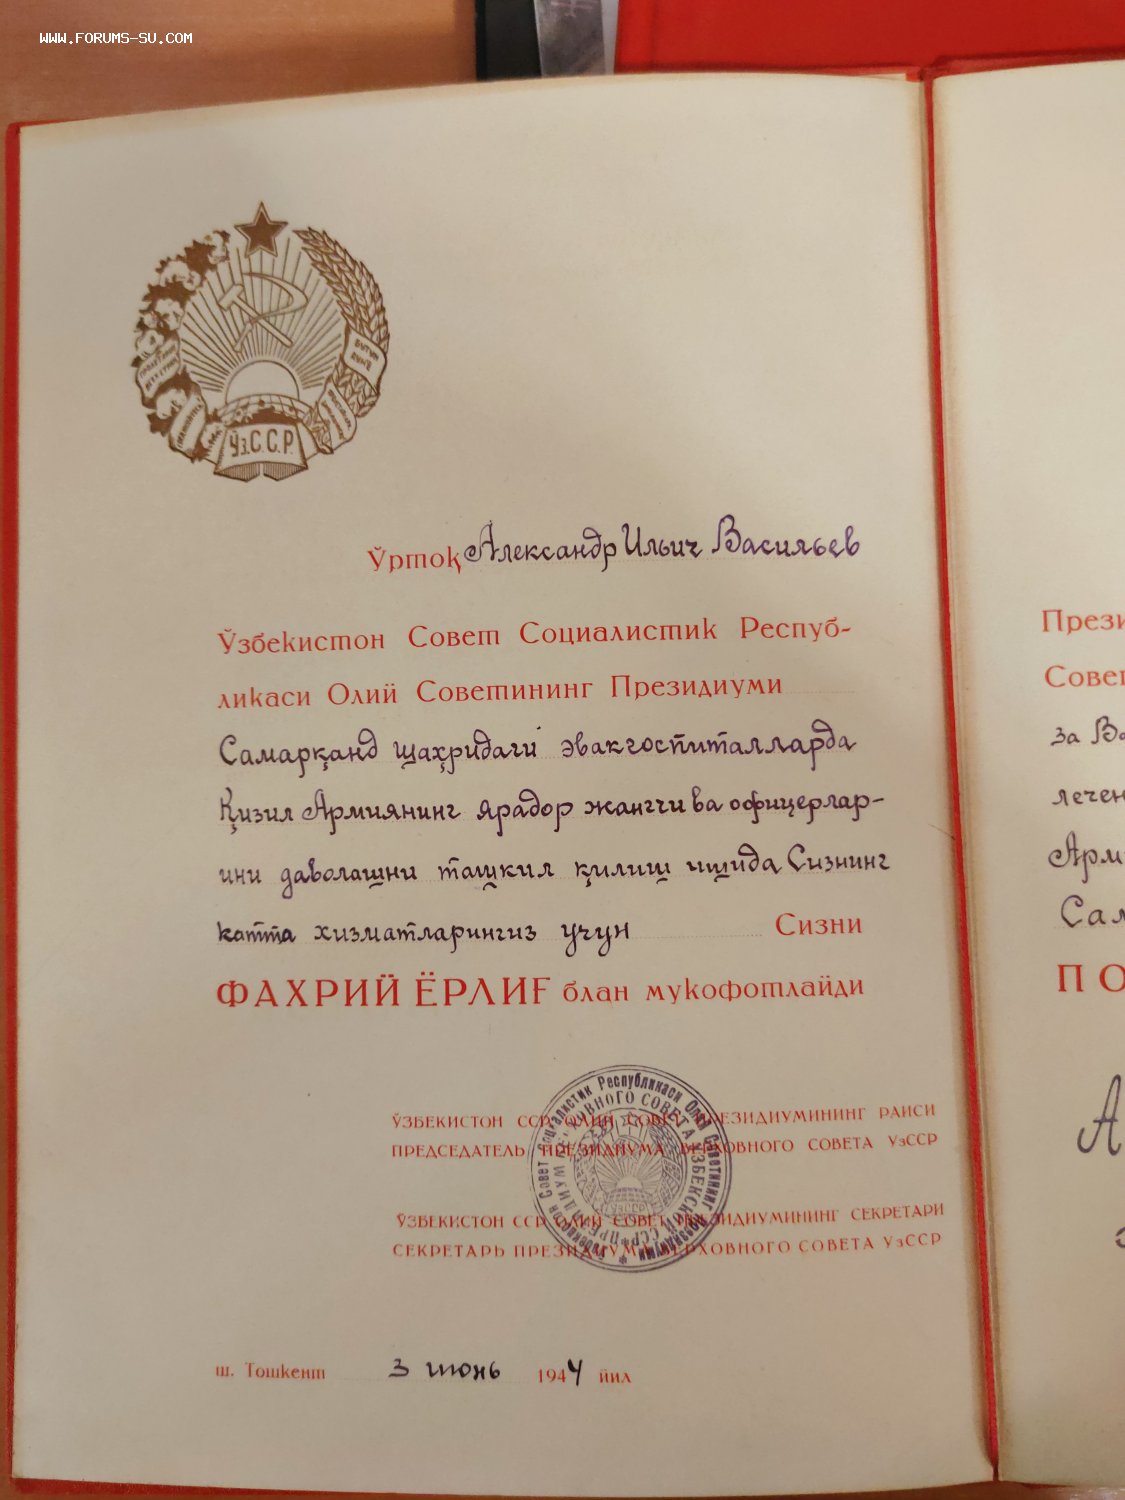 WWW.FORUMS-SU.COM
Ўз.С.С.Р.
Ўртоқ Александр Ильич Васильев
Ўзбекистон Совет Социалистик Респуб-
ликаси Олий Советининг Президиуми
Самарқанд шаҳридаги эвакгоспиталларда
Қизил Армиянинг ярадор жангчи ва офицерлар-
ини даволашни ташкил қилиш ишида Сизнинг
катта хизматларингиз учун Сизни
ФАХРИЙ ЁРЛИҒ блан мукофотлайди
ЎЗБЕКИСТОН ССР ОЛИЙ СОВЕТ ПРЕЗИДИУМИНИНГ РАИСИ
ПРЕДСЕДАТЕЛЬ ПРЕЗИДИУМА ВЕРХОВНОГО СОВЕТА УзССР
ЎЗБЕКИСТОН ССР ОЛИЙ СОВЕТ ПРЕЗИДИУМИНИНГ СЕКРЕТАРИ
СЕКРЕТАРЬ ПРЕЗИДИУМА ВЕРХОВНОГО СОВЕТА УзССР
Ўзбекистон Совет Социалистик Республикаси Олий Советининг Президиуми
ПРЕЗИДИУМ ВЕРХОВНОГО СОВЕТА УЗБЕКСКОЙ ССР
ш. Тошкент 3 июнь 1944 йил
Прези
Совет
за Ва
лечен
Арми
Сам
ПО